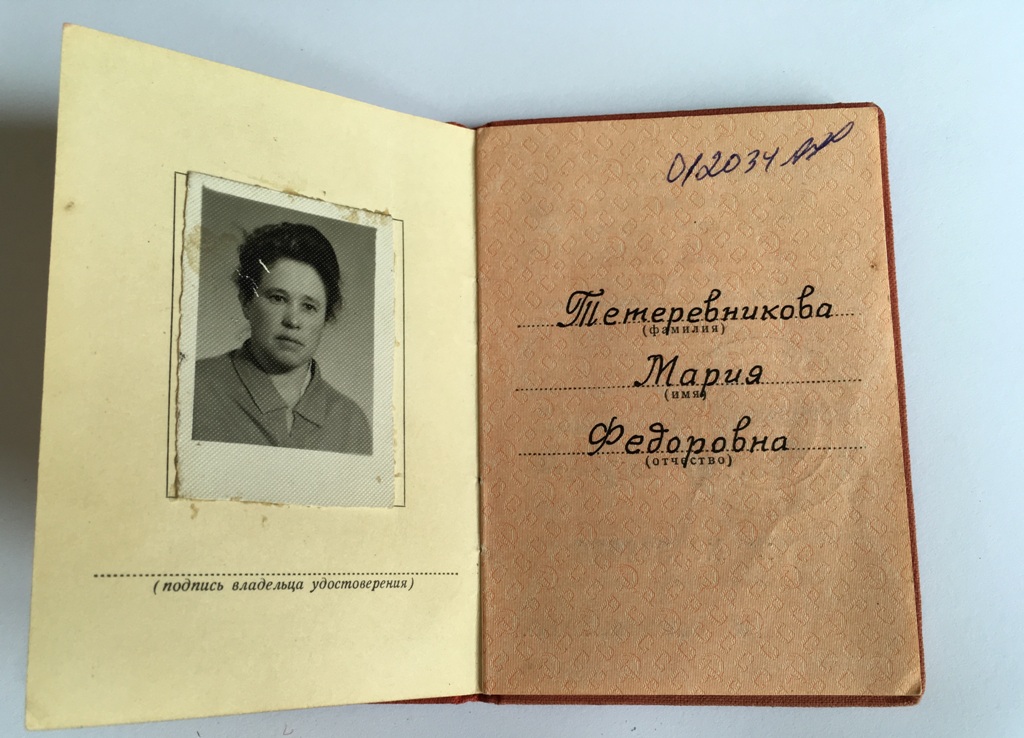 (подпись владельца удостоверения)
012034
Тетеревникова
(фамилия)
Мария
(имя)
Федоровна
(отчество)